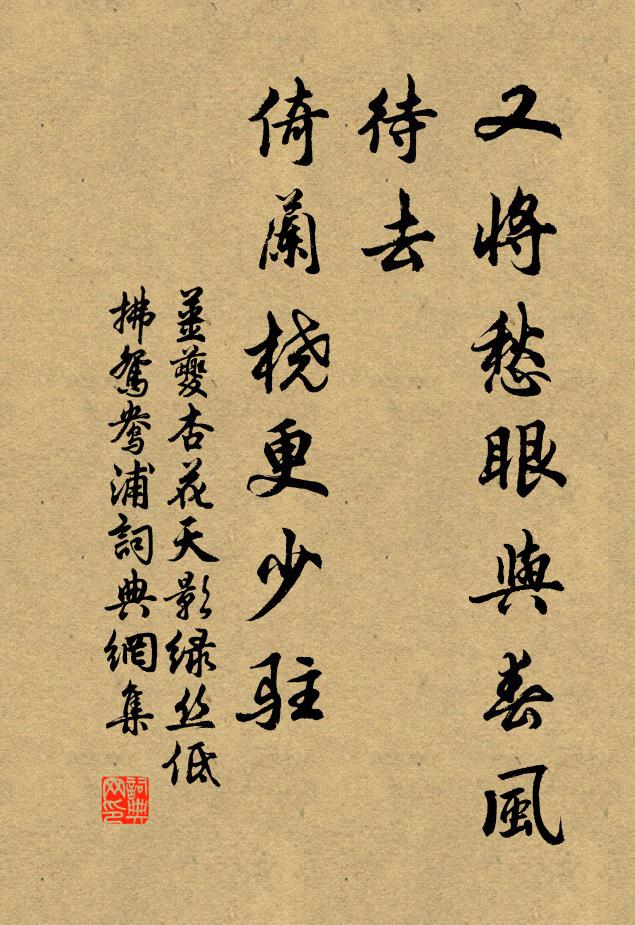 又將愁眼與春風
待去
倚蘭橈更少駐
薑夔杏花天影綠丝低
拂鴛鴦浦詞典網集
詞典
网印